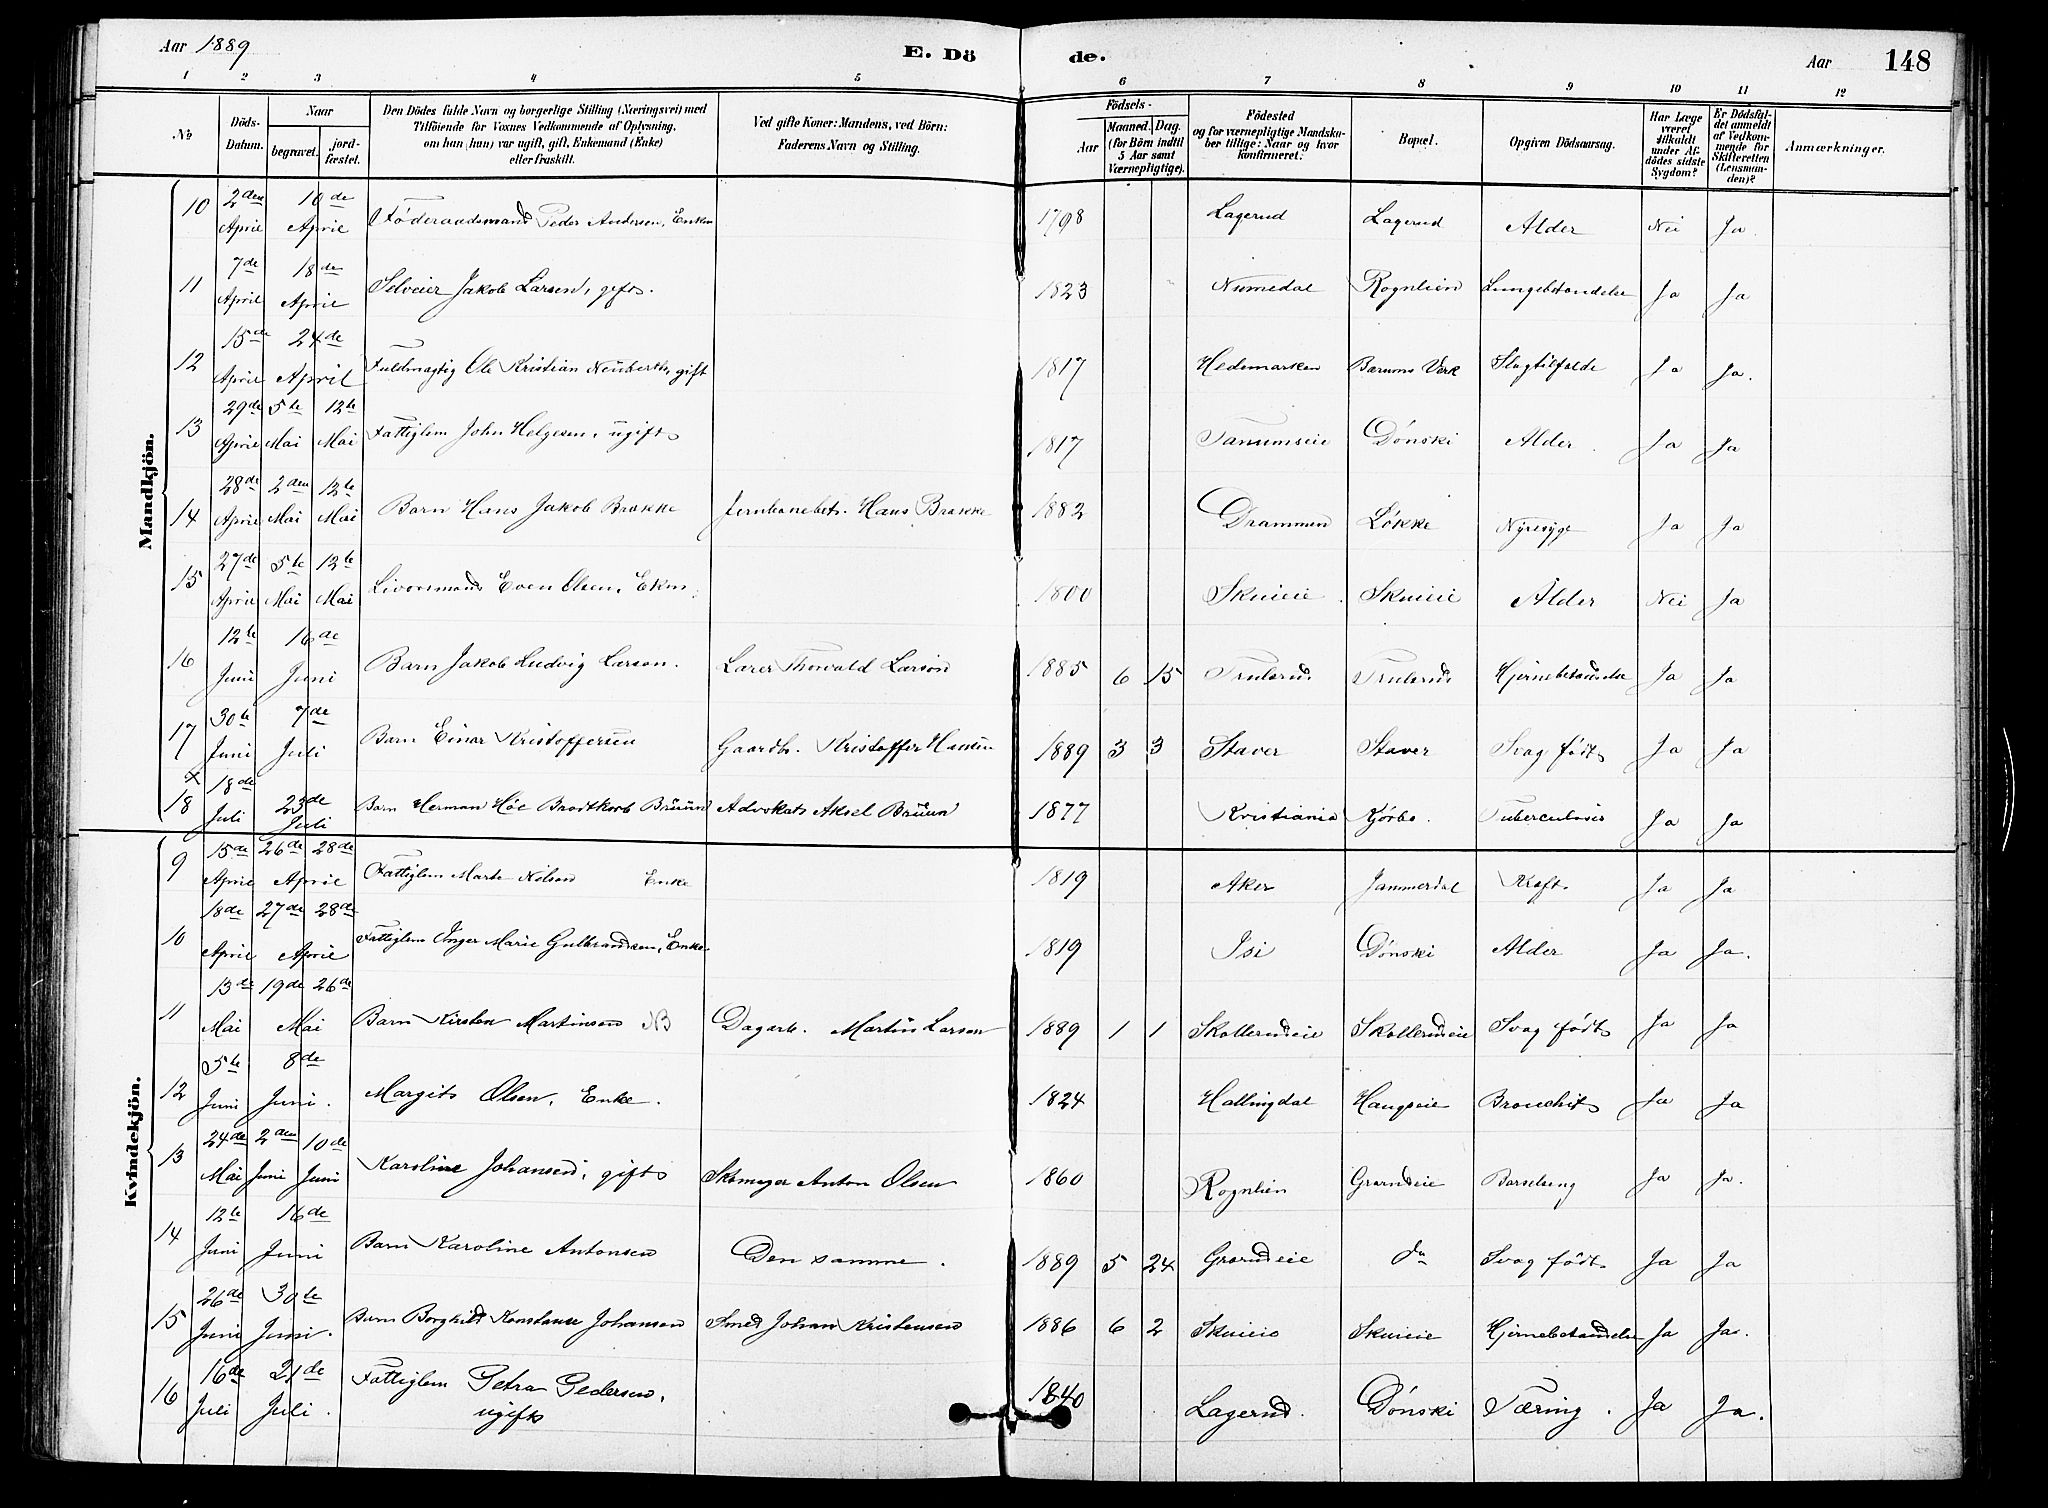 Aar 1889
E. Dö de.
Aar
148
1 2 3 4 5 6 7 8 9 10 11 12
№
Döds-Datum.
Naar
begravet.
jord-fæstet.
Den Dödes fulde Navn og borgerlige Stilling (Næringsvei) med
Tilföiende for Voxnes Vedkommende af Oplysning,
om han (hun) var ugift, gift, Enkemand (Enke)
eller fraskilt.
Ved gifte Koner: Mandens, ved Börn:
Faderens Navn og Stilling.
Födsels-
Aar
Maaned. Dag.
(for Börn indtil
5 Aar samt
Værnepligtige).
Födested
og for værnepligtige Mandska-
ber tillige: Naar og hvor
konfirmeret.
Bopæl.
Opgiven Dödsaarsag.
Har Læge
været
tilkaldt
under Af-
dödes sidste
Sygdom?
Er Dödsfal-
det anmeldt
af Vedkom-
mende for
Skifteretten
(Lensman-
den)?
Anmærkninger.
Mandkjön.
10 2den April 10de April Föderaadsmand Peder Andersen, Enkm 1798 Lagerud Lagerud Alder Nei Ja.
11 7de April 18de April Selveier Jakob Larsen, gift. 1823 Numedal Rognlien Lungebetændelse Ja Ja
12 15de April 24de April Fuldmægtig Ole Kristian Neuberth, gift 1817 Hedemarken Bærums Værk Slagtilfælde Ja Ja.
13 29de April 5te Mai 12te Mai Fattiglem John Helgesen, ugift 1817 Tanumseie Dönski Alder. Ja Ja
14 28de April 2den Mai 12te Mai Barn Hans Jakob Brække Jernbanebet. Hans Brække 1882 Drammen Lökke Nyresyge Ja Ja
15 27de April 5te Mai 12te Mai Livorsmand Even Olsen, Ekm. 1800 Skuieie. Skuieie Alder Nei Ja
16 12te Juni 16de Juni Barn Jakob Ludvig Larsen. Lærer Thorvald Larsen 1885 6 15 Trulsrud. Trulsrud Hjernebetændelse Ja Ja
17 30te Juni 7de Juli Barn Einar Kristoffersen Gaardbr. Kristoffer Hansen 1889 3 3 Staver Staver Svag födt Ja Ja
x 18 18de Juli 23de Juli Barn Herman Höe Brodtkorb Bruun Advokat Aksel Bruun 1877 Kristiania Kjörbo. Tuberculosis Ja Ja
Kvindekjön.
9 15de April 26de 28de April Fattiglem Marte Nilsen Enke 1819 Aker Jammerdal Kræft. Ja Ja
10 18de April 27de 28de April Fattiglem Inger Marie Gulbrandsen, Enke. 1819 Isi Dönski Alder Ja Ja.
11 13de Mai 19de 26de Mai Barn Kirsten Martinsen NB Dagarb. Martin Larsen 1889 1 1 Skollerudeie Skollerudeie Svag födt Ja Ja
12 5te Juni 8de Juni. Margit Olsen, Enke. 1824 Hallingdal Haugseie Bronchit Ja Ja
13 24de Mai 2den Juni 10de Juni Karoline Johansen, gift Skomager Anton Olsen 1860 Rognlien Grorudeie Barselseng Ja Ja.
14 12te Juni 16de Juni Barn Karoline Antonsen Den samme. 1889 5 24 Grorudeie do Svag födt. Ja Ja
15 26de Juni 30te Juni. Barn Borghild Konstanse Johansen Smed Johan Kristensen 1886 6 2 Skuieie Skuieie Hjernebetændelse Ja Ja.
16 16de Juli 21de Juli. Fattiglem Petra Pedersen, ugift 1840 Lagerud. Dönski Tæring. Ja Ja.